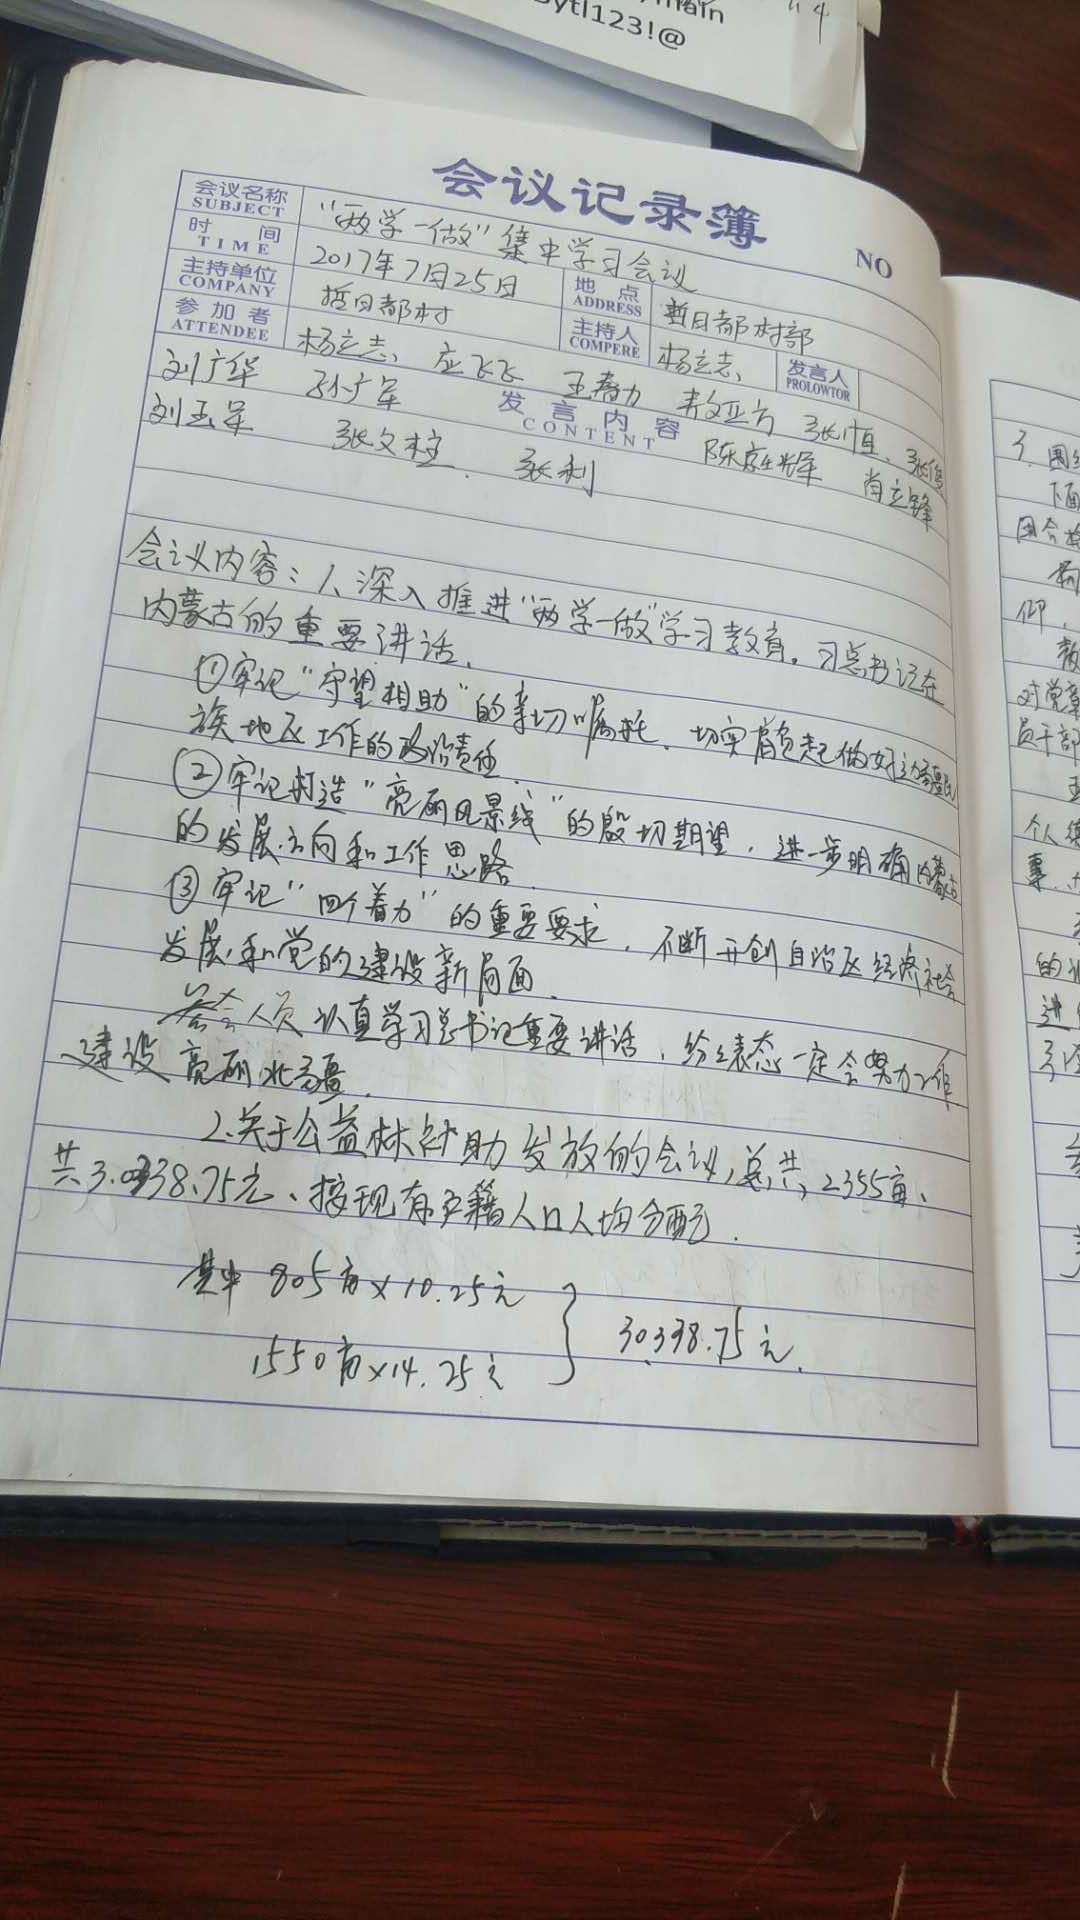 ytl123!@
会议记录簿
NO
会议名称 SUBJECT “两学一做”集中学习会议
时间 TIME 2017年7月25日 地点 ADDRESS 哲日都村部
主持单位 COMPANY 哲日都村 主持人 COMPERE 杨立志 发言人 PROLOWTOR
参加者 ATTENDEE 杨立志、应飞飞 王春力 敖亚方 张恒、张俊
刘广华 孙广军 发言内容 CONTENT 陈庭辉 肖立锋
刘玉军 张文柱 张利
会议内容:1、深入推进“两学一做”学习教育。习总书记在
内蒙古的重要讲话.
①牢记“守望相助”的亲切嘱托,切实肩负起做好边疆民
族地区工作的政治责任.
②牢记打造“亮丽风景线”的殷切期望,进一步明确内蒙古
的发展方向和工作思路.
③牢记“四个着力”的重要要求,不断开创自治区经济社会
发展和党的建设新局面.
参会人员认真学习总书记重要讲话,纷纷表态一定会努力工作
建设亮丽北疆.
2.关于公益林补助发放的会议,总共,2355亩、
共3.0338.75元、按现有户籍人口人均分配.
其中 805亩×10.25元
1550亩×14.25元
} 30338.75元.
3. 围
下面
对党章
员干部
个人
的
进